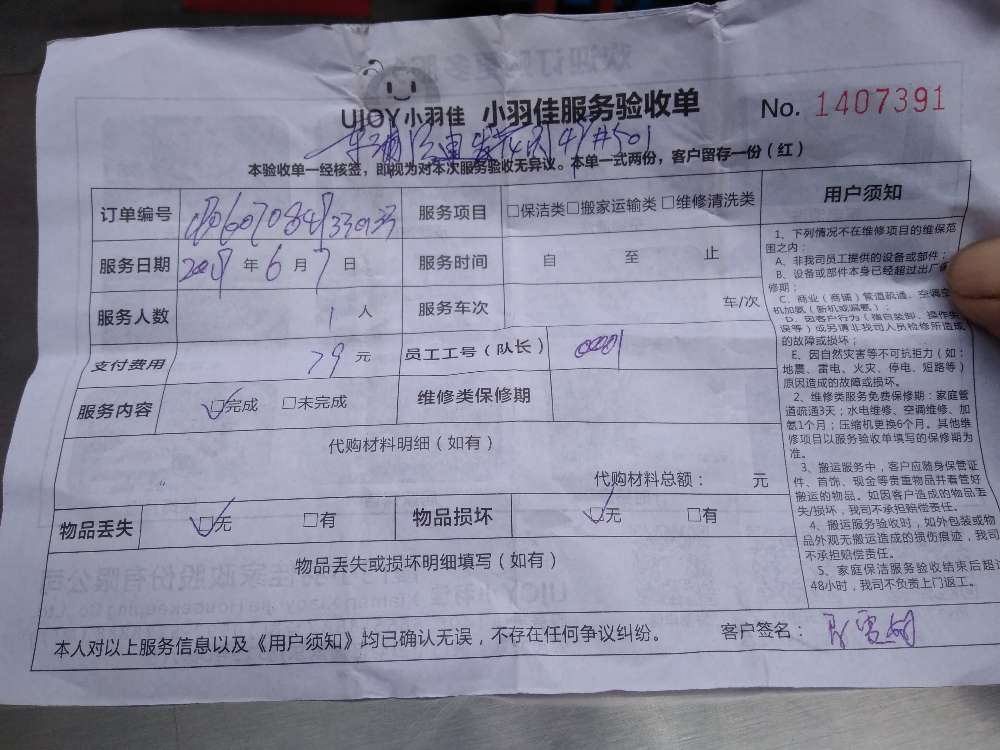 UJOY 小羽佳 小羽佳服务验收单 No. 1407391
41#501
本验收单一经核签，即视为对本次服务验收无异议。本单一式两份，客户留存一份（红）
订单编号 服务项目 □保洁类□搬家运输类□维修清洗类
服务日期 年6月7日 服务时间 自 至 止
服务人数 1人 服务车次 车/次
支付费用 79元 员工工号（队长） 0001
服务内容 □完成 □未完成 维修类保修期
代购材料明细（如有）
代购材料总额： 元
物品丢失 □无 □有 物品损坏 □无 □有
物品丢失或损坏明细填写（如有）
本人对以上服务信息以及《用户须知》均已确认无误，不存在任何争议纠纷。 客户签名：
用户须知
1、下列情况不在维修项目的维保范
围之内：
A、非我司员工提供的设备或部件；
B、设备或部件本身已经超过出厂
修期；
C、商业（商铺）管道疏通、空调
机加氨（新机或漏氨）；
D、因客户行为（指自装卸、操作失
误等）或另请非我司人员检修所造成
的故障或损坏；
E、因自然灾害等不可抗拒力（如：
地震、雷电、火灾、停电、短路等）
原因造成的故障或损坏。
2、维修类服务免费保修期：家庭管
道疏通3天；水电维修、空调维修、加
氨1个月；压缩机更换6个月。其他维
修项目以服务验收单填写的保修期为
准。
3、搬运服务中，客户应随身保管证
件、首饰、现金等贵重物品并看管好
搬运的物品。如因客户造成的物品丢
失/损坏，我司不承担赔偿责任。
4、搬运服务验收时，如外包装或物
品外观无搬运造成的损伤痕迹，我司
不承担赔偿责任。
5、家庭保洁服务验收结束后超过
48小时，我司不负责上门返工。